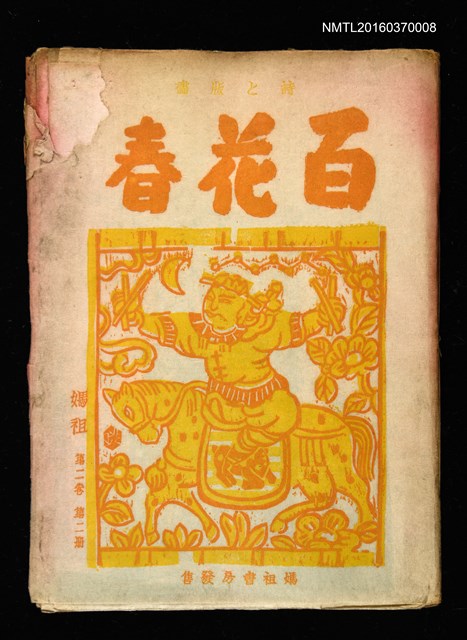 NMTL20160370008
詩と版畫
百花春
媽祖
第二卷 第二册
媽祖書房發售